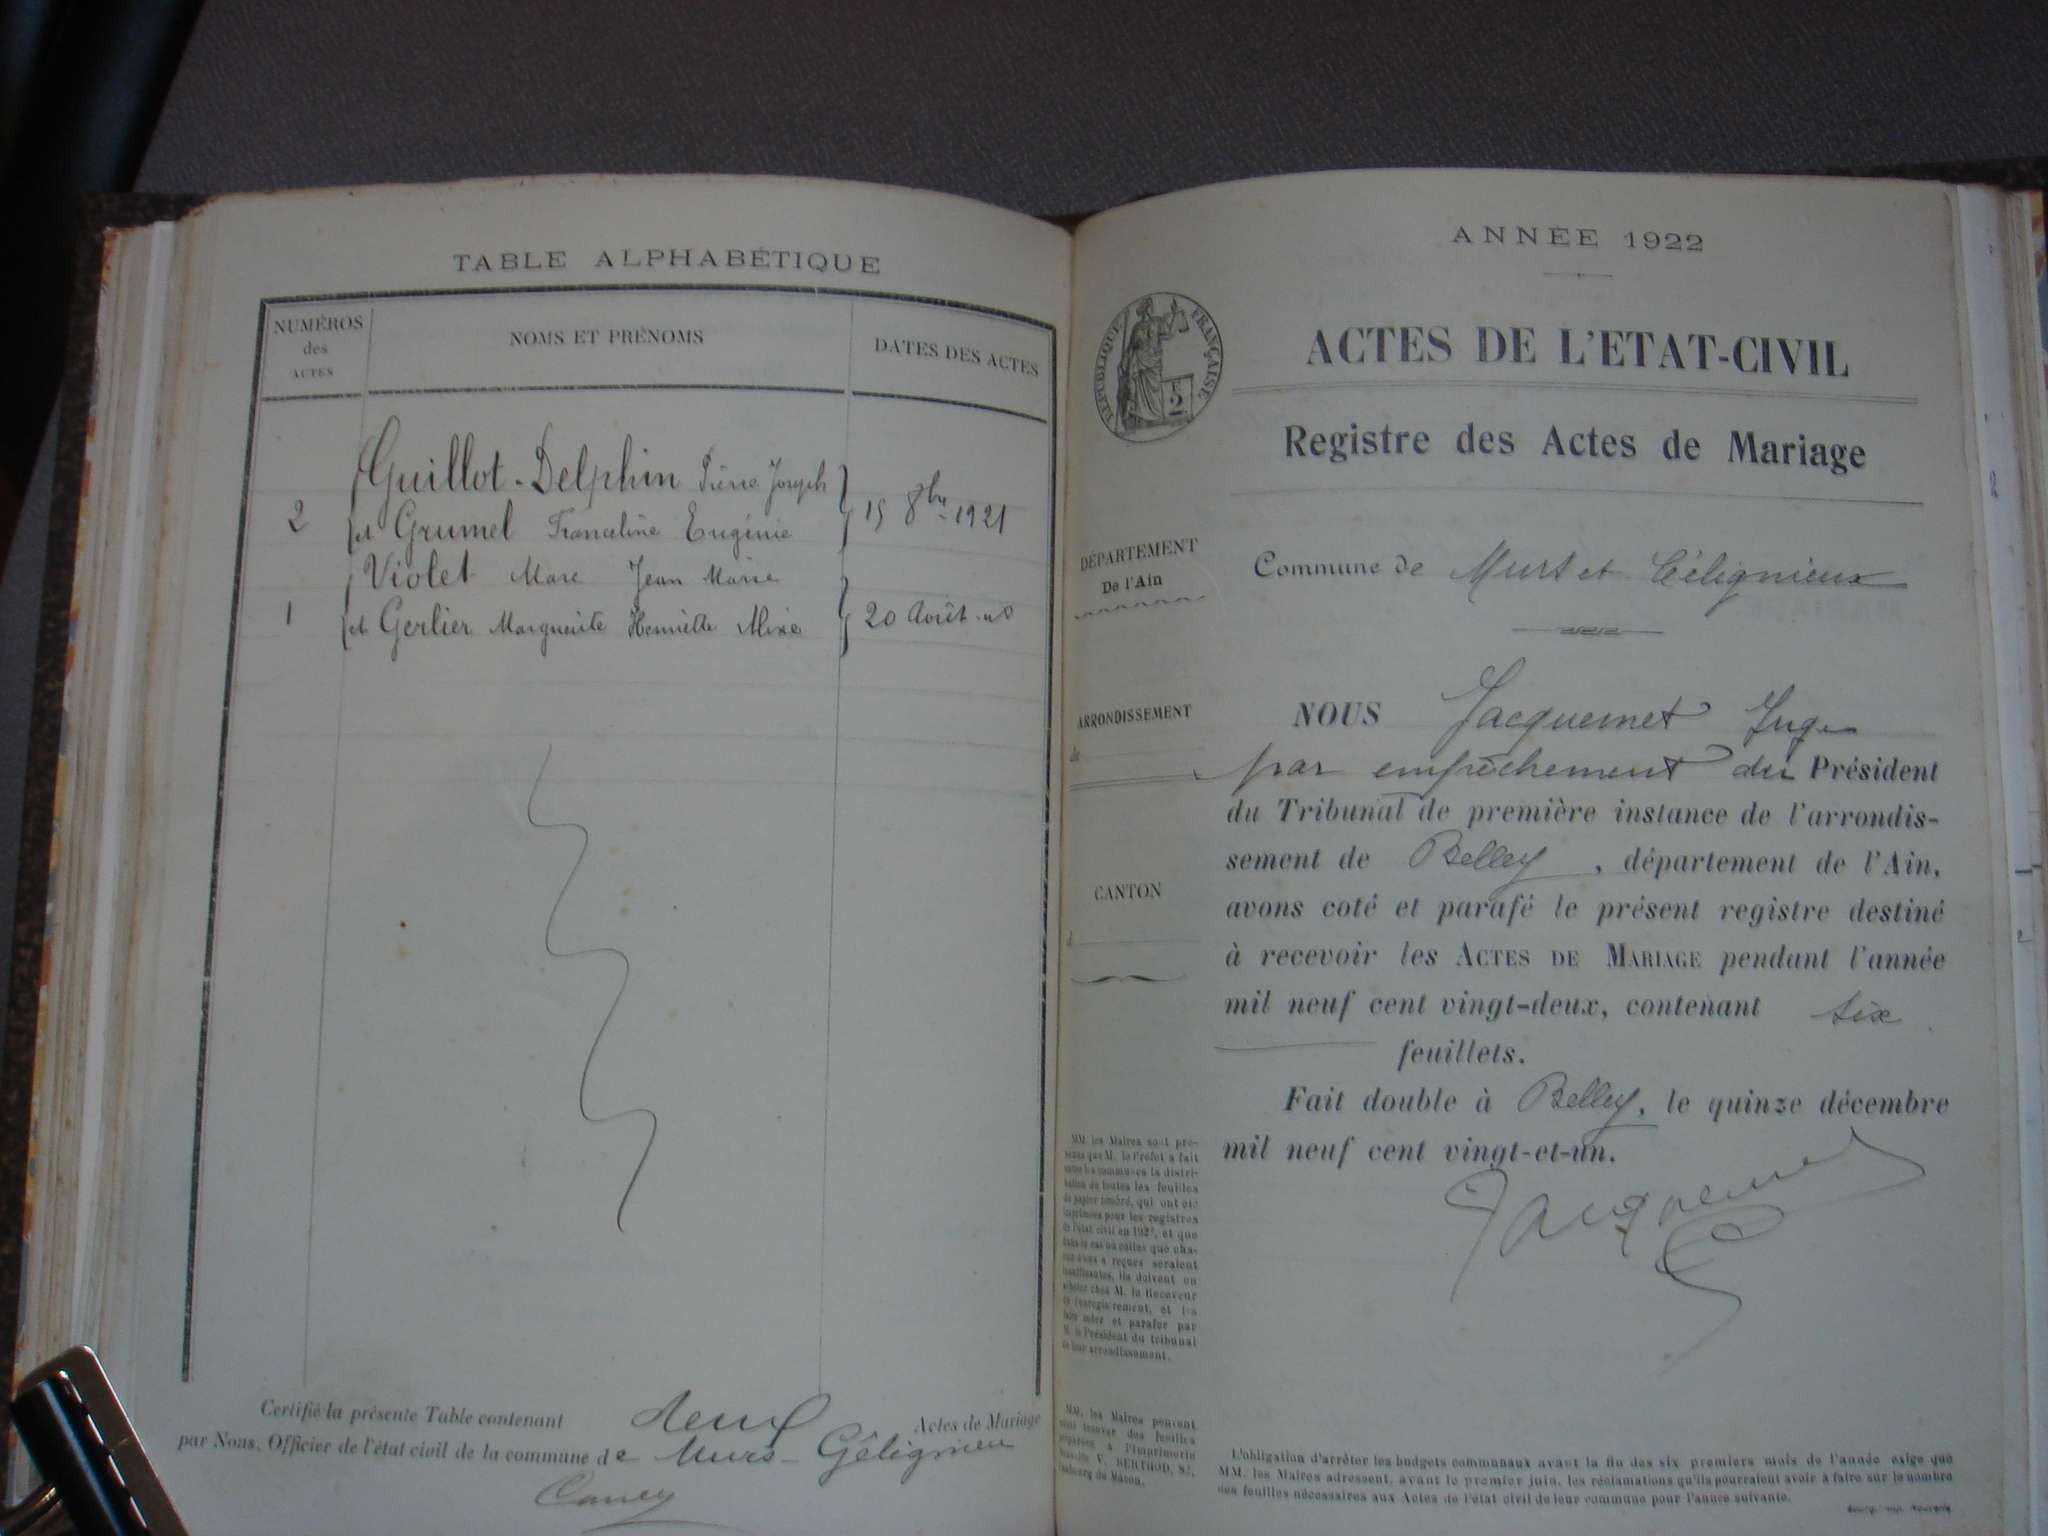 TABLE ALPHABÉTIQUE
NUMÉROS
des
ACTES
NOMS ET PRÉNOMS
DATES DES ACTES
Guillot-Delphin Pierre Joseph
2 et Grumel Franceline Eugénie 15 8bre 1921
Violet Marc Jean Marie
1 et Gerlier Marguerite Henriette 20 Août
Certifié la présente Table contenant deux Actes de Mariage
par Nous, Officier de l'état civil de la commune de Murs-Gélignieu
ANNÉE 1922
RÉPUBLIQUE FRANÇAISE
2
F
ACTES DE L'ETAT-CIVIL
Registre des Actes de Mariage
DÉPARTEMENT
De l'Ain
Commune de Murs et Gélignieux
ARRONDISSEMENT
CANTON
NOUS Jacquemet Juge
par empêchement du Président
du Tribunal de première instance de l'arrondis-
sement de Belley, département de l'Ain,
avons coté et parafé le présent registre destiné
à recevoir les ACTES DE MARIAGE pendant l'année
mil neuf cent vingt-deux, contenant six
feuillets.
Fait double à Belley, le quinze décembre
mil neuf cent vingt-et-un.
Jacquemet
MM. les Maires sont pré-
venus que M. le Préfet a fait
entre les communes la distri-
bution de toutes les feuilles
de papier timbré, qui ont été
imprimées pour les registres
de l'état civil en 192, et que
dans le cas où celles que cha-
cun d'eux a reçues seraient
insuffisantes, ils doivent en
acheter chez M. le Receveur
de l'enregistrement, et les
faire coter et parafer par
M. le Président du tribunal
de leur arrondissement.
MM. les Maires peuvent
aussi trouver des feuilles
préparées à l'Imprimerie
V. BERTHOD, 82,
faubourg de Mâcon.
L'obligation d'arrêter les budgets communaux avant la fin des six premiers mois de l'année exige que
MM. les Maires adressent, avant le premier juin, les réclamations qu'ils pourraient avoir à faire sur le nombre
des feuilles nécessaires aux Actes de l'état civil de leur commune pour l'année suivante.